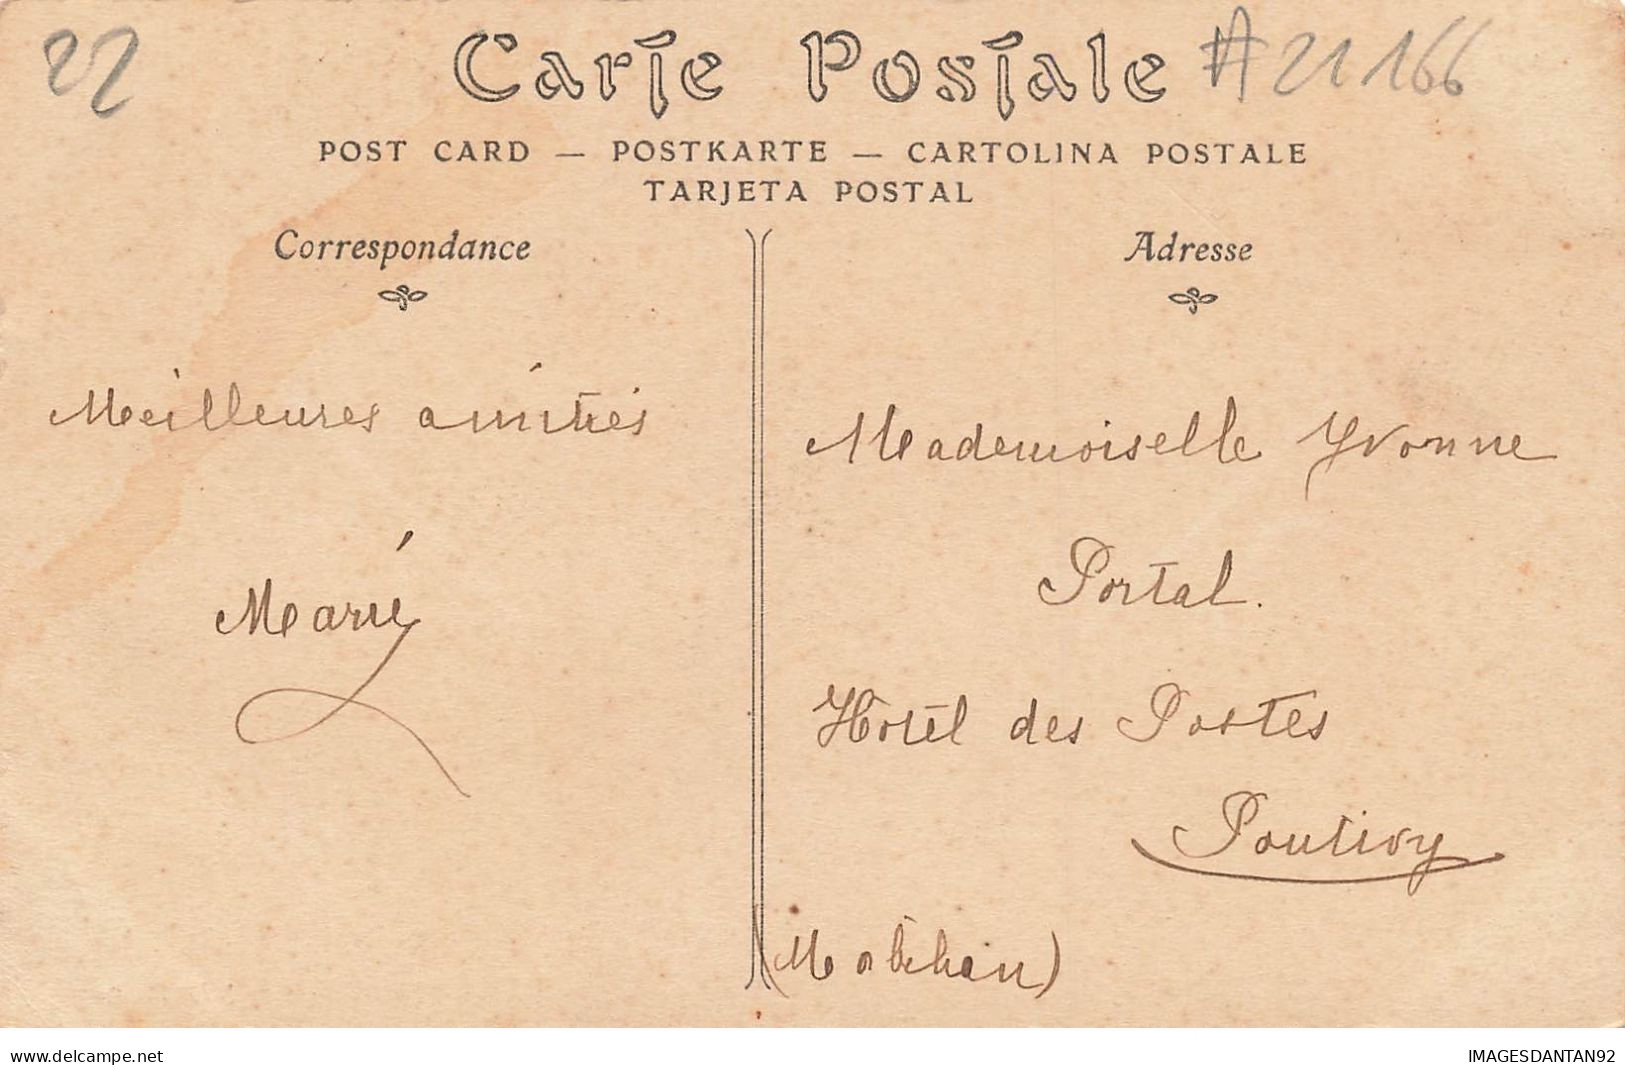 22
Carte Postale #21166
POST CARD — POSTKARTE — CARTOLINA POSTALE
TARJETA POSTAL
Correspondance
Meilleures amitiés
Marie
Adresse
Mademoiselle Yvonne
Portal.
Hôtel des Postes
Pontivy
(Morbihan)
www.delcampe.net
IMAGESDANTAN92